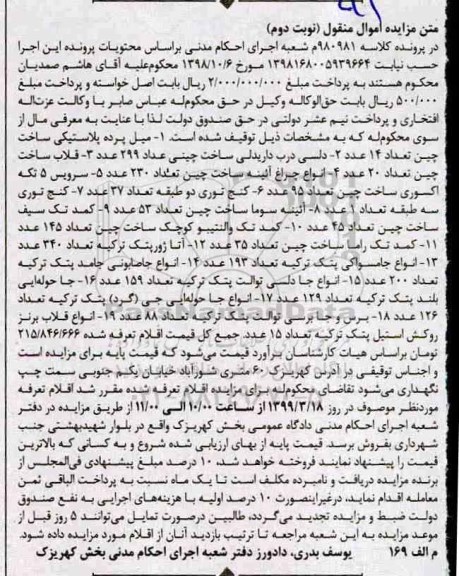 متن مزایده اموال منقول (نوبت دوم)
در پرونده کلاسه ۹۸۰۹۸۱م شعبه اجرای احکام مدنی براساس محتویات پرونده این اجرا
حسب نیابت ۱۳۹۸۱۶۸۰۰۵۹۳۹۶۶۴ مورخ ۱۳۹۸/۱۰/۶ محکوم‌علیه آقای هاشم صمدیان
محکوم هستند به پرداخت مبلغ ۲/۰۰۰/۰۰۰/۰۰۰ ریال بابت اصل خواسته و پرداخت مبلغ
۵۰۰/۰۰۰ ریال بابت حق‌الوکاله وکیل در حق محکوم‌له عباس صابر با وکالت عزت‌اله
افتخاری و پرداخت نیم عشر دولتی در حق صندوق دولت لذا با عنایت به معرفی مال از
سوی محکوم‌له که به مشخصات ذیل توقیف شده است. ۱- میل پرده پلاستیکی ساخت
چین تعداد ۱۴ عدد ۲- دلسی درب داریدلی ساخت چینی عداد ۲۹۹ عدد ۳- قلاب ساخت
چین تعداد ۲۰ عدد ۴- انواع چراغ آئینه ساخت چین تعداد ۲۳۰ عدد ۵- سرویس ۵ تکه
اکسوری ساخت چین تعداد ۹۵ عدد ۶- کنج توری دو طبقه تعداد ۳۷ عدد ۷- کنج توری
سه طبقه تعداد عدد ۸- آئینه سوما ساخت چین تعداد ۵۳ عدد ۹- کمد تک سیف
ساخت چین تعداد ۴۵ عدد ۱۰- کمد تک والنتیبو کوچک ساخت چین تعداد ۱۴۵ عدد
۱۱- کمد تک راما ساخت چین تعداد ۳۵ عدد ۱۲- آتا ژورپتک ترکیه تعداد ۳۴۰ عدد
۱۳- انواع جامسواکی پتک ترکیه تعداد ۱۹۳ عدد ۱۴- انواع جاصابونی جامد پتک ترکیه
تعداد ۲۰۰ عدد ۱۵- انواع جا دلسی توالت پتک ترکیه تعداد ۱۵۹ عدد ۱۶- جا حوله‌ایی
بلند پتک ترکیه تعداد ۱۲۹ عدد ۱۷- انواع جا حوله‌ایی جی (گرد) پتک ترکیه تعداد
۱۲۶ عدد ۱۸- برس و جا برسی توالت پتک ترکیه تعداد ۸۸ عدد ۱۹- انواع قلاب برنز
روکش استیل پتک ترکیه تعداد ۱۵ عدد. جمع کل قیمت اقلام تعرفه شده ۲۱۵/۸۴۶/۶۶۶
تومان براساس هیات کارشناسان برآورد قیمت می‌شود که قیمت پایه برای مزایده است
و اجناس توقیفی در آدرس کهریزک ۶۰ متری شورآباد خیابان یکم جنوبی سمت چپ
نگهداری می‌شود تقاضای محکوم‌له برای مزایده اقلام تعرفه شده مقرر شد اقلام تعرفه
موردنظر موصوف در روز ۱۳۹۹/۳/۱۸ از ساعت ۱۰/۰۰ الی ۱۱/۰۰ از طریق مزایده در دفتر
شعبه اجرای احکام مدنی دادگاه عمومی بخش کهریزک واقع در بلوار شهیدبهشتی جنب
شهرداری بفروش برسد. قیمت پایه از بهای ارزیابی شده شروع و به کسانی که بالاترین
قیمت را پیشنهاد نمایند فروخته خواهد شد، ۱۰ درصد مبلغ پیشنهادی فی‌المجلس از
برنده مزایده دریافت و نامبرده مکلف است تا یک ماه نسبت به پرداخت الباقی ثمن
معامله اقدام نماید، درغیراینصورت ۱۰ درصد اولیه با هزینه‌های اجرایی به نفع صندوق
دولت ضبط و مزایده تجدید می‌گردد، طالبین درصورت تمایل می‌توانند ۵ روز قبل از
موعد مزایده به این شعبه مراجعه تا ترتیب بازدید آنان از اقلام مورد مزایده داده شود.
م الف ۱۶۹ یوسف بدری، دادورز دفتر شعبه اجرای احکام مدنی بخش کهریزک